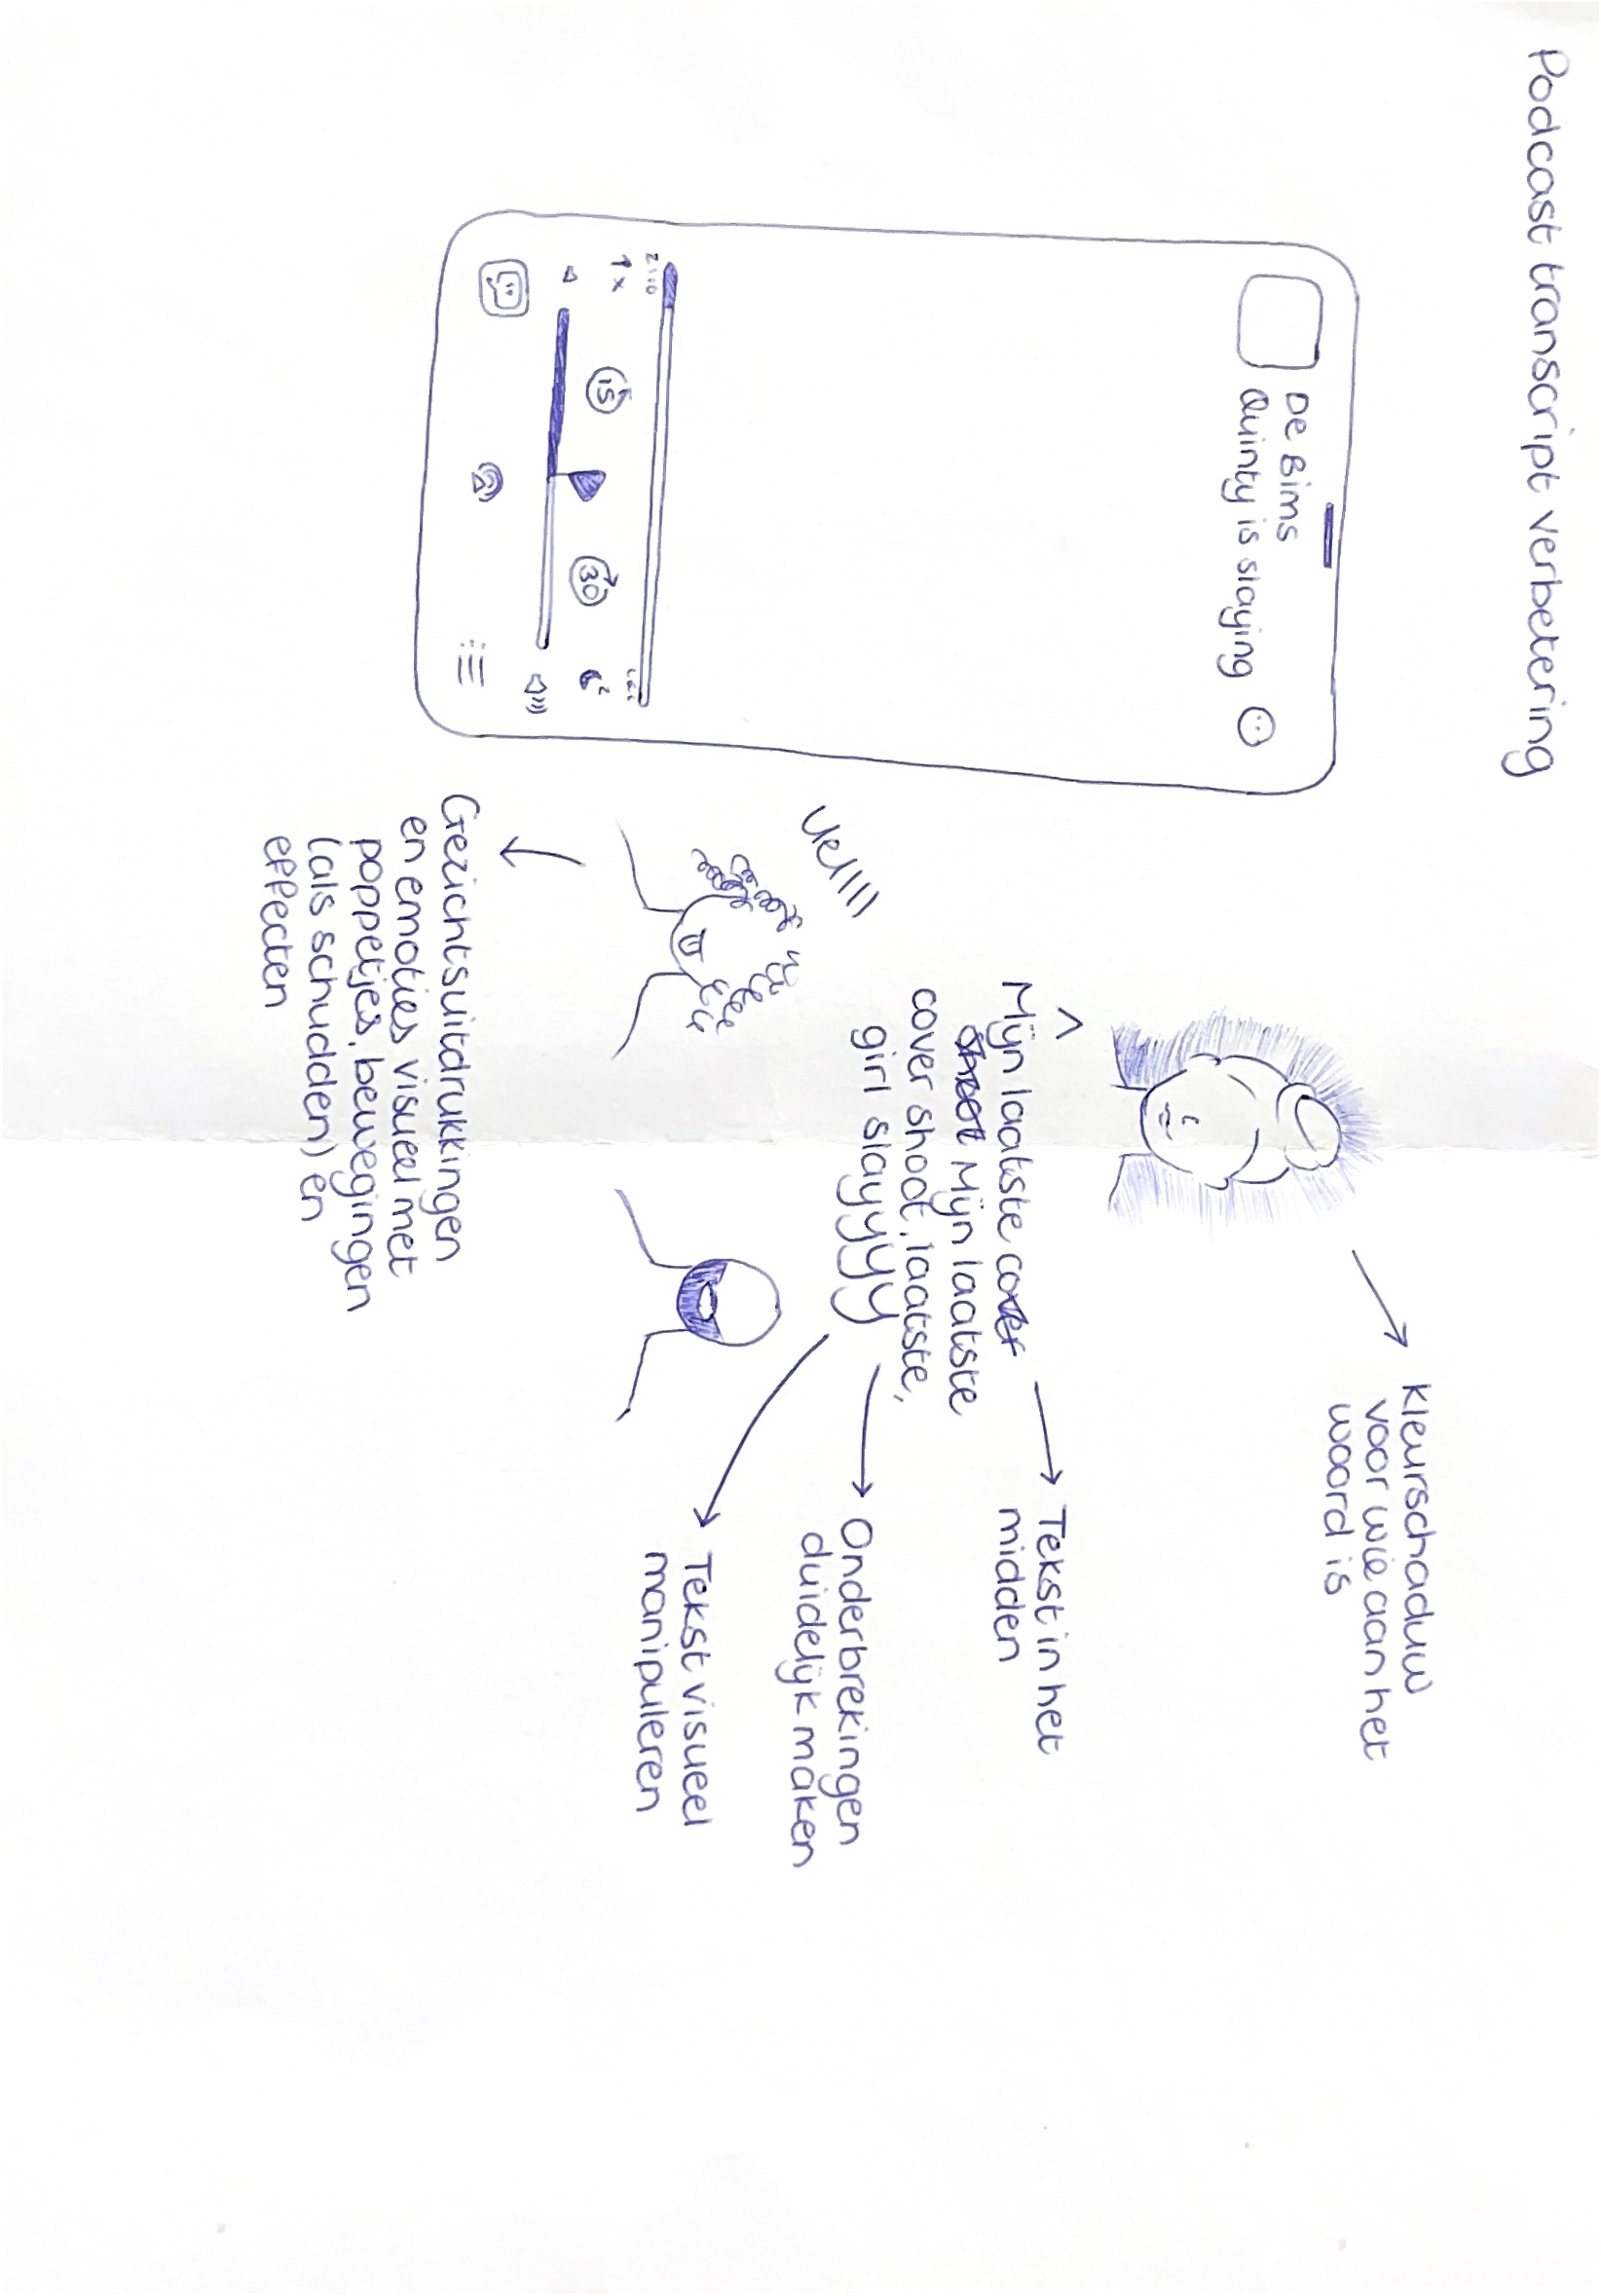 Podcast transcript verbetering
De Bims
Quinty is slaying
1x
15
30
Kleurschaduw
voor wie aan het
woord is
Mijn laatste cover
shoot Mijn laatste
cover shoot, laatste,
girl slayyyy
Tekst in het
midden
Onderbrekingen
duidelijk maken
Tekst visueel
manipuleren
Gezichtsuitdrukkingen
en emoties visueel met
poppetjes, bewegingen
(als schudden) en
effecten